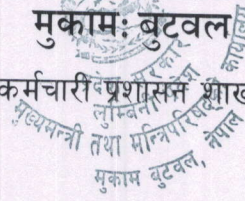 मुकामः बुटवल
कर्मचारी प्रशासन शाख
सरकार
लुम्बिनी
मुख्यमन्त्री तथा मन्त्रिपरिषद्को कार्यालय
मुकाम बुटवल, नेपाल